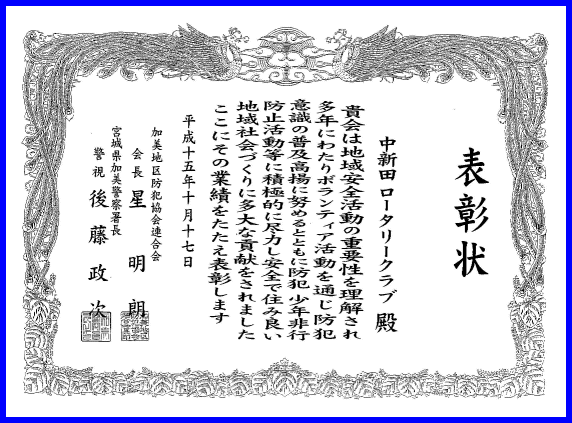 表彰状
中新田ロータリークラブ 殿
貴会は地域安全活動の重要性を理解され
多年にわたりボランティア活動を通じ防犯
意識の普及高揚に努めるとともに防犯少年非行
防止活動等に積極的に尽力し安全で住み良い
地域社会づくりに多大な貢献をされました
ここにその業績をたたえ表彰します
平成十五年十月十七日
加美地区防犯協会連合会
会長 星 明朗
宮城県加美警察署長
警視 後藤政次